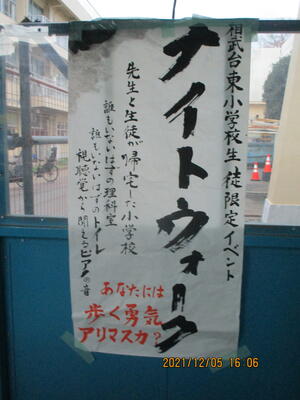 相武台東小学校生徒限定イベント
ナイトウォーク
先生と生徒が帰宅した小学校
誰もいないはずの理科室
誰もいないはずのトイレ
視聴覚から聞こえるピアノの音
あなたには
歩く勇気
アリマスカ?
2021/12/05 16:06